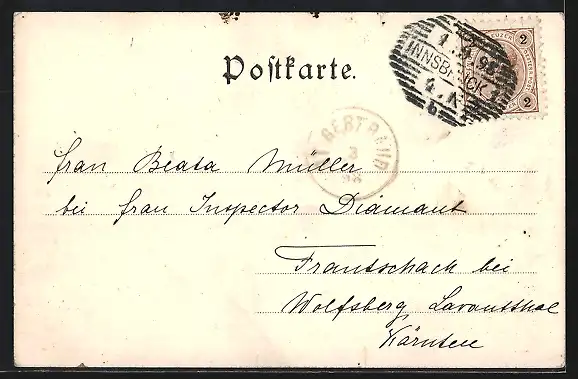 Postkarte.
KREUZER
2
2
INNSBRUCK
ST BERTRAUD
3
Frau Beata Müller
bei Frau Inspector Diamant
Frantschach bei
Wolfsberg, Lavantthal
Kärnten